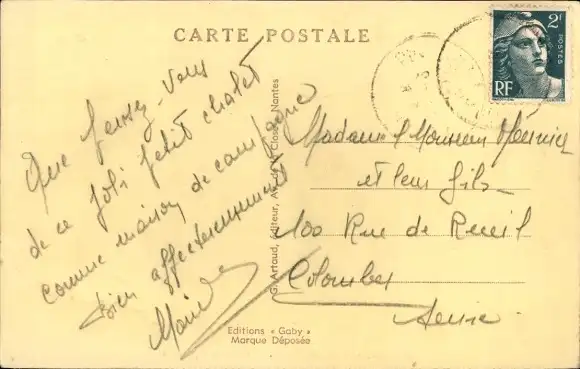 CARTE POSTALE
2F
POSTES
RF
Que pensez-vous
de ce joli petit chalet
comme maison de campagne
Bien affectueusement
G. Artaud, éditeur, Av. de la Close, Nantes
Madame & Monsieur
et leur fils
100 Rue de Reuil
Colombes
Seine
Editions « Gaby »
Marque Déposée